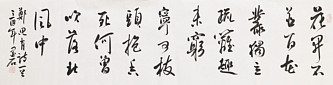 花開不
並百花
叢獨立
疏籬趣
未窮
寧可枝
頭抱香
死何曾
吹落北
風中
鄭思肖詩一首